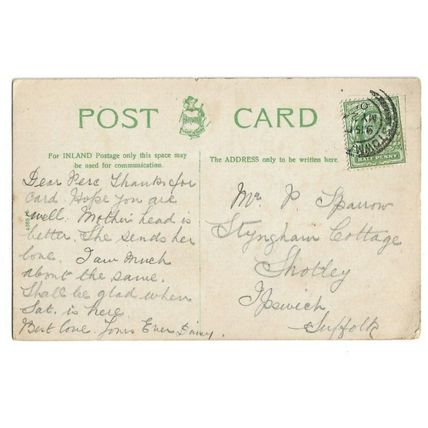 POST CARD
For INLAND Postage only this space may
be used for communication.
The ADDRESS only to be written here.
HALF PENNY
Dear Perc Thanks for
Card Hope you are
well. Mother's head is
better. She sends her
love. I am much
about the same.
Shall be glad when
Sat. is here
Best love. Yours Ever Daisy
Mr. P Sparrow
Cottage
Shotley
Ipswich
Suffolk